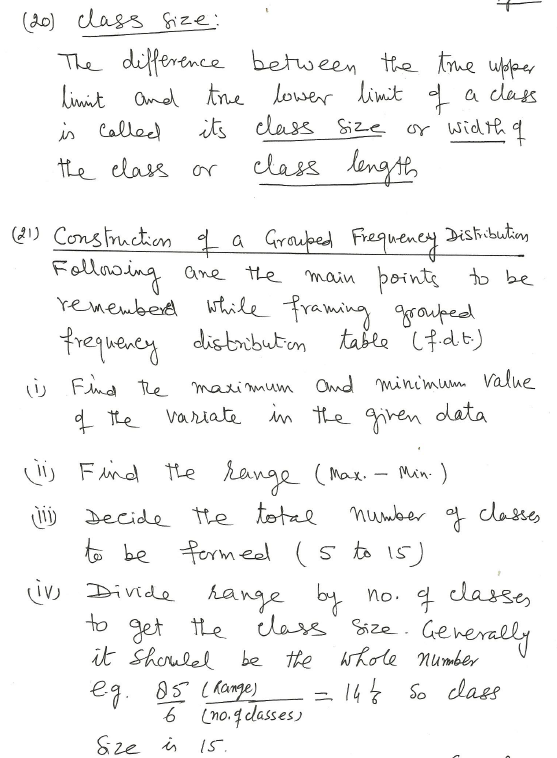 (20) Class Size:
The difference between the true upper
limit and true lower limit of a class
is called its class size or width of
the class or class length
(21) Construction of a Grouped Frequency Distribution
Following are the main points to be
rememberd while framing grouped
frequency distribution table (f.d.t.)
(i) Find the maximum and minimum value
of the variate in the given data
(ii) Find the range (Max. - Min.)
(iii) Decide the total number of classes
to be formed (5 to 15)
(iv) Divide range by no. of classes
to get the class size. Generally
it should be the whole number
e.g. 85 (Range) / 6 (no. of classes) = 14 1/6 so class
Size is 15.